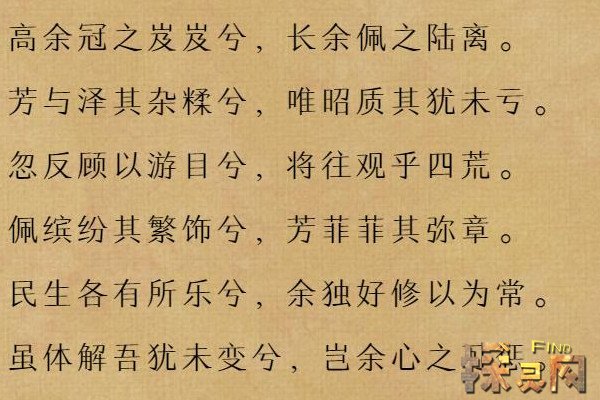 高余冠之岌岌兮，长余佩之陆离。
芳与泽其杂糅兮，唯昭质其犹未亏。
忽反顾以游目兮，将往观乎四荒。
佩缤纷其繁饰兮，芳菲菲其弥章。
民生各有所乐兮，余独好修以为常。
虽体解吾犹未变兮，岂余心之
FIND
探灵网